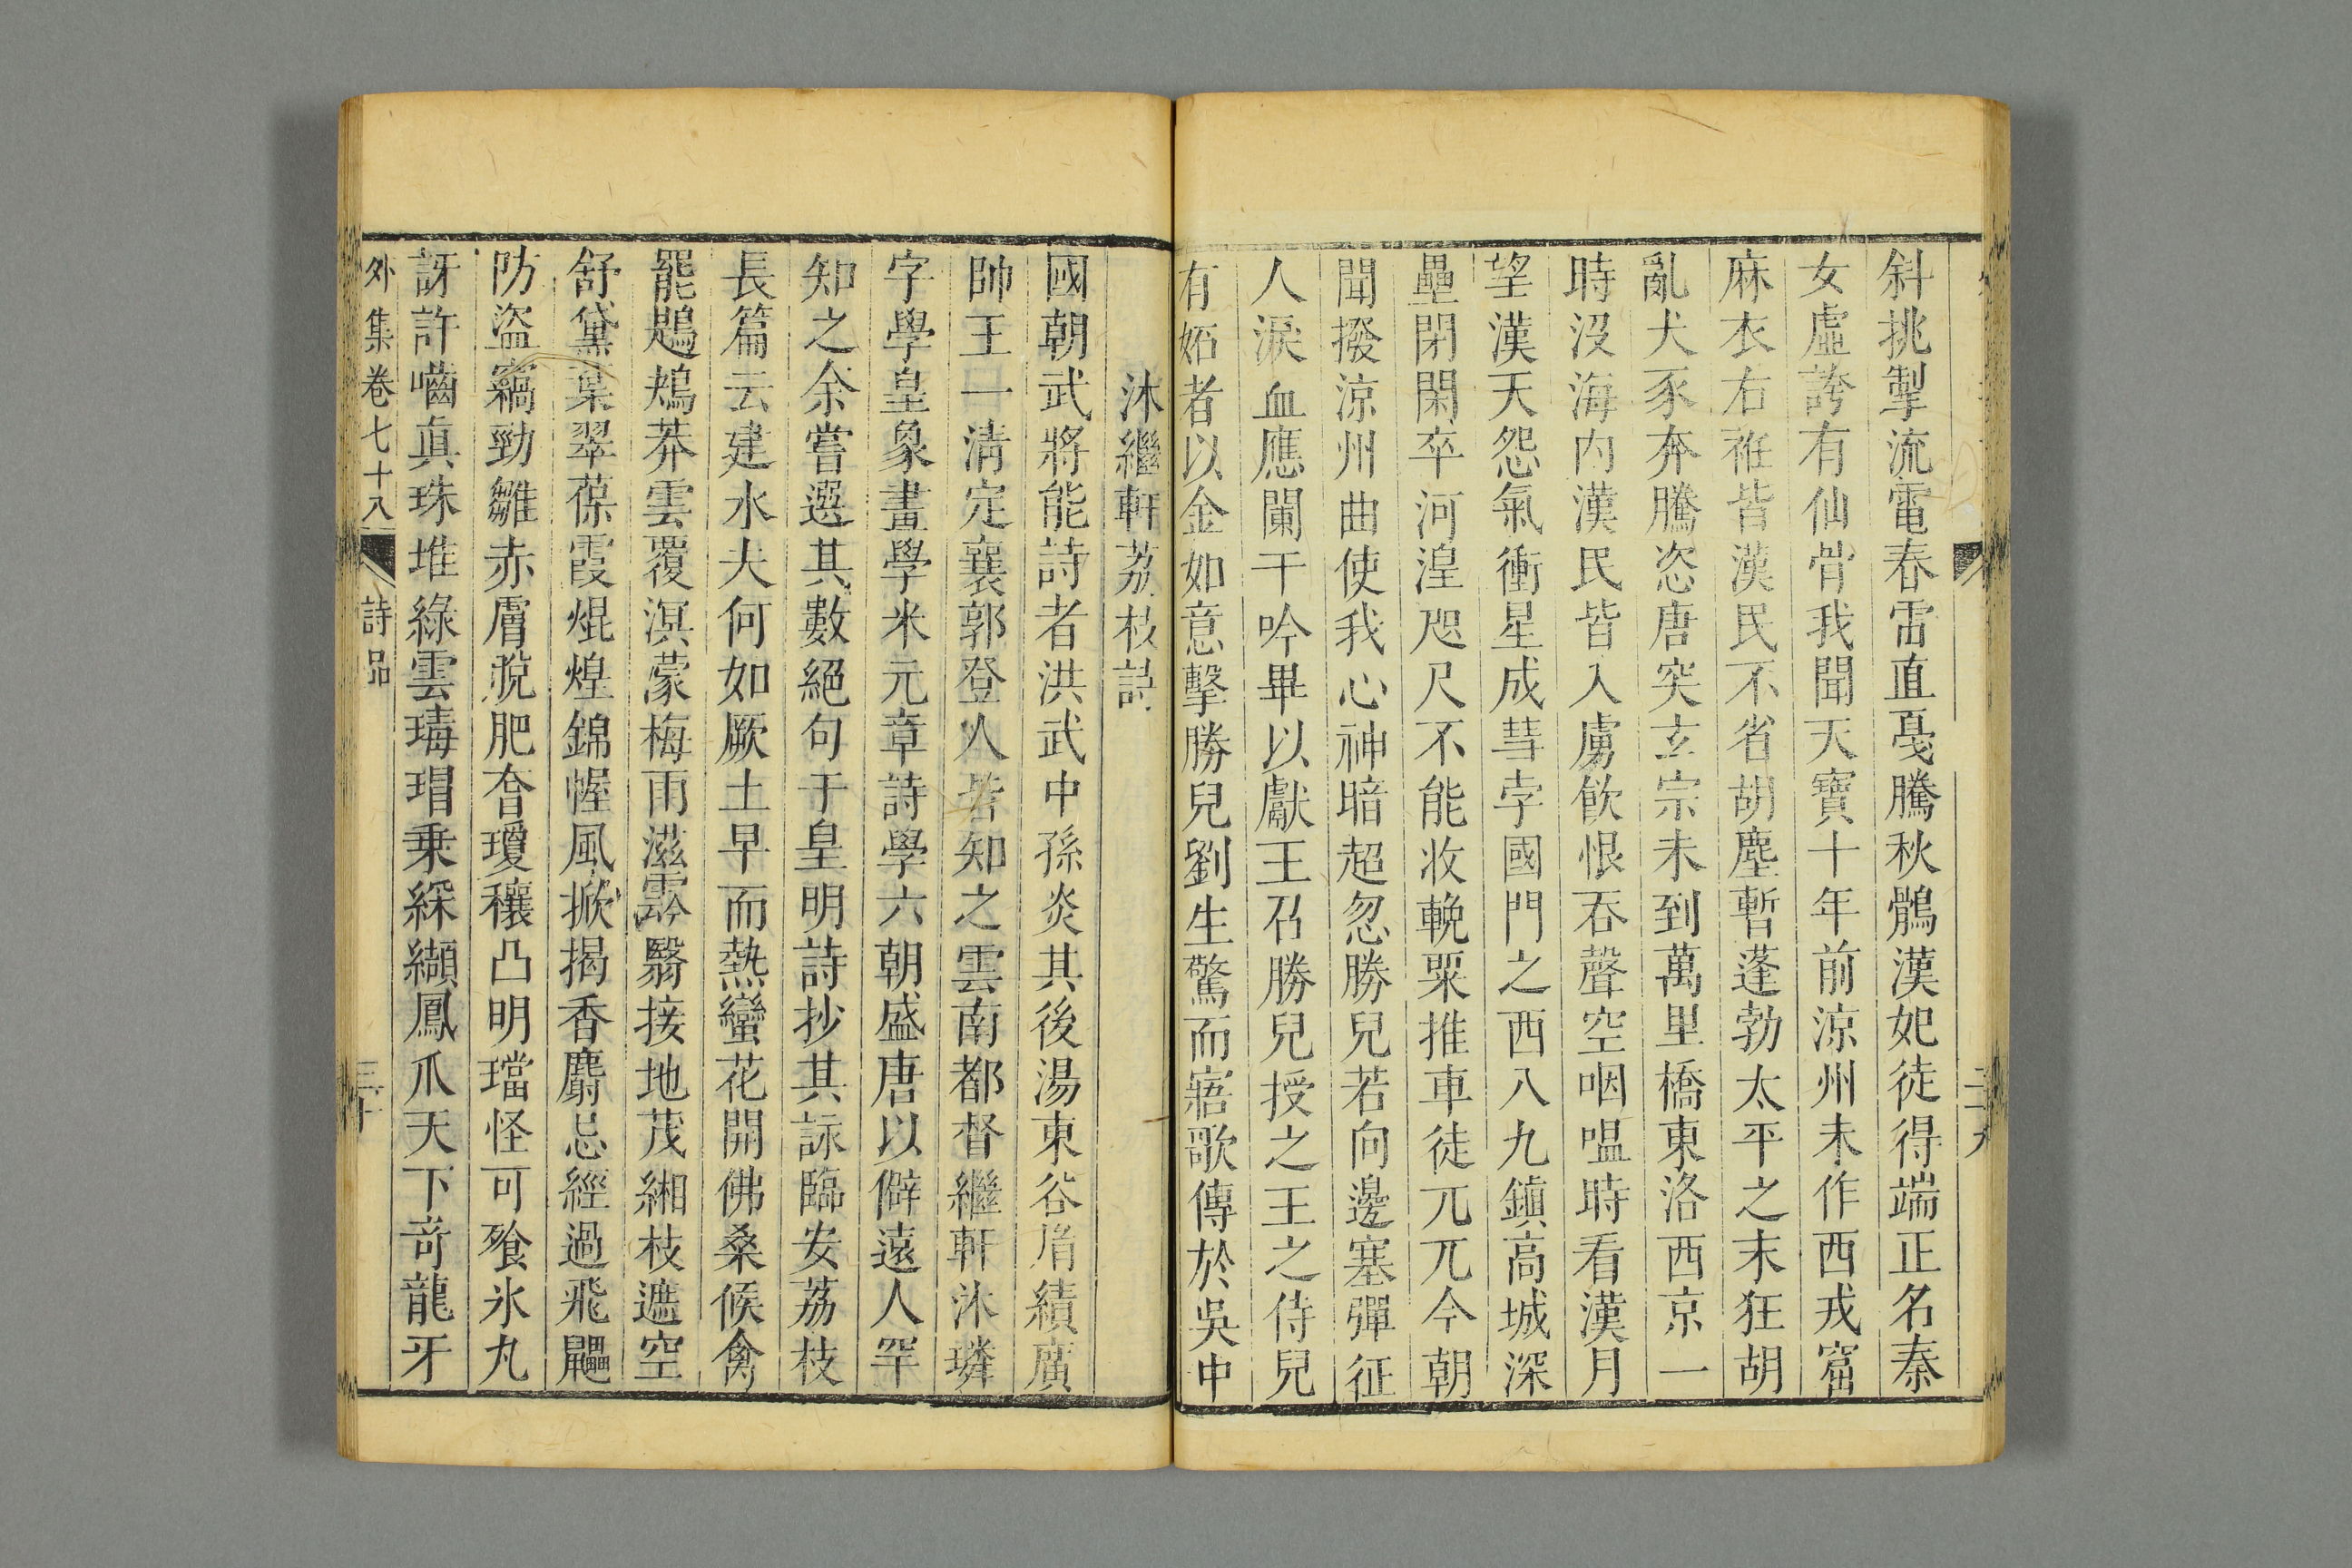 斜挑掣流電春雷直戞騰秋鶻漢妃徒得端正名秦
女虛誇有仙骨我聞天寶十年前涼州未作西戎窟
麻衣右衽皆漢民不省胡塵暫蓬勃太平之末狂胡
亂犬豕奔騰恣唐突玄宗未到萬里橋東洛西京一
時没海内漢民皆入虜飲恨吞聲空咽嗢時看漢月
望漢天怨氣衝星成彗孛國門之西八九鎮高城深
壘閉閑卒河湟咫尺不能收輓粟推車徒兀兀今朝
聞撥涼州曲使我心神暗超忽勝兒若向邊塞彈征
人淚血應闌干吟畢以獻王召勝兒授之王之侍兒
有妬者以金如意擊勝兒劉生驚而寤歌傳於吳中
沐繼軒荔枝詩
國朝武將能詩者洪武中孫炎其後湯東谷胤績廣
帥王一清定襄郭登人皆知之雲南都督繼軒沐璘
字學皇象畫學米元章詩學六朝盛唐以僻遠人罕
知之余嘗選其數絕句于皇明詩抄其詠臨安荔枝
長篇云建水夫何如厥土早而熱蠻花開佛桑候禽
罷鶗鴂莽雲覆溟蒙梅雨滋霡翳接地茂緗枝遮空
舒黛葉翠葆霞焜煌錦幄風掀揭香麝忌經過飛鼺
防盜竊勁雛赤膚脫肥㚖瓊穰凸明璫怪可飱氷丸
訝許嚙眞珠堆綠雲瑇瑁乗綵纈鳳爪天下竒龍牙
外集卷七十八 詩品 三十